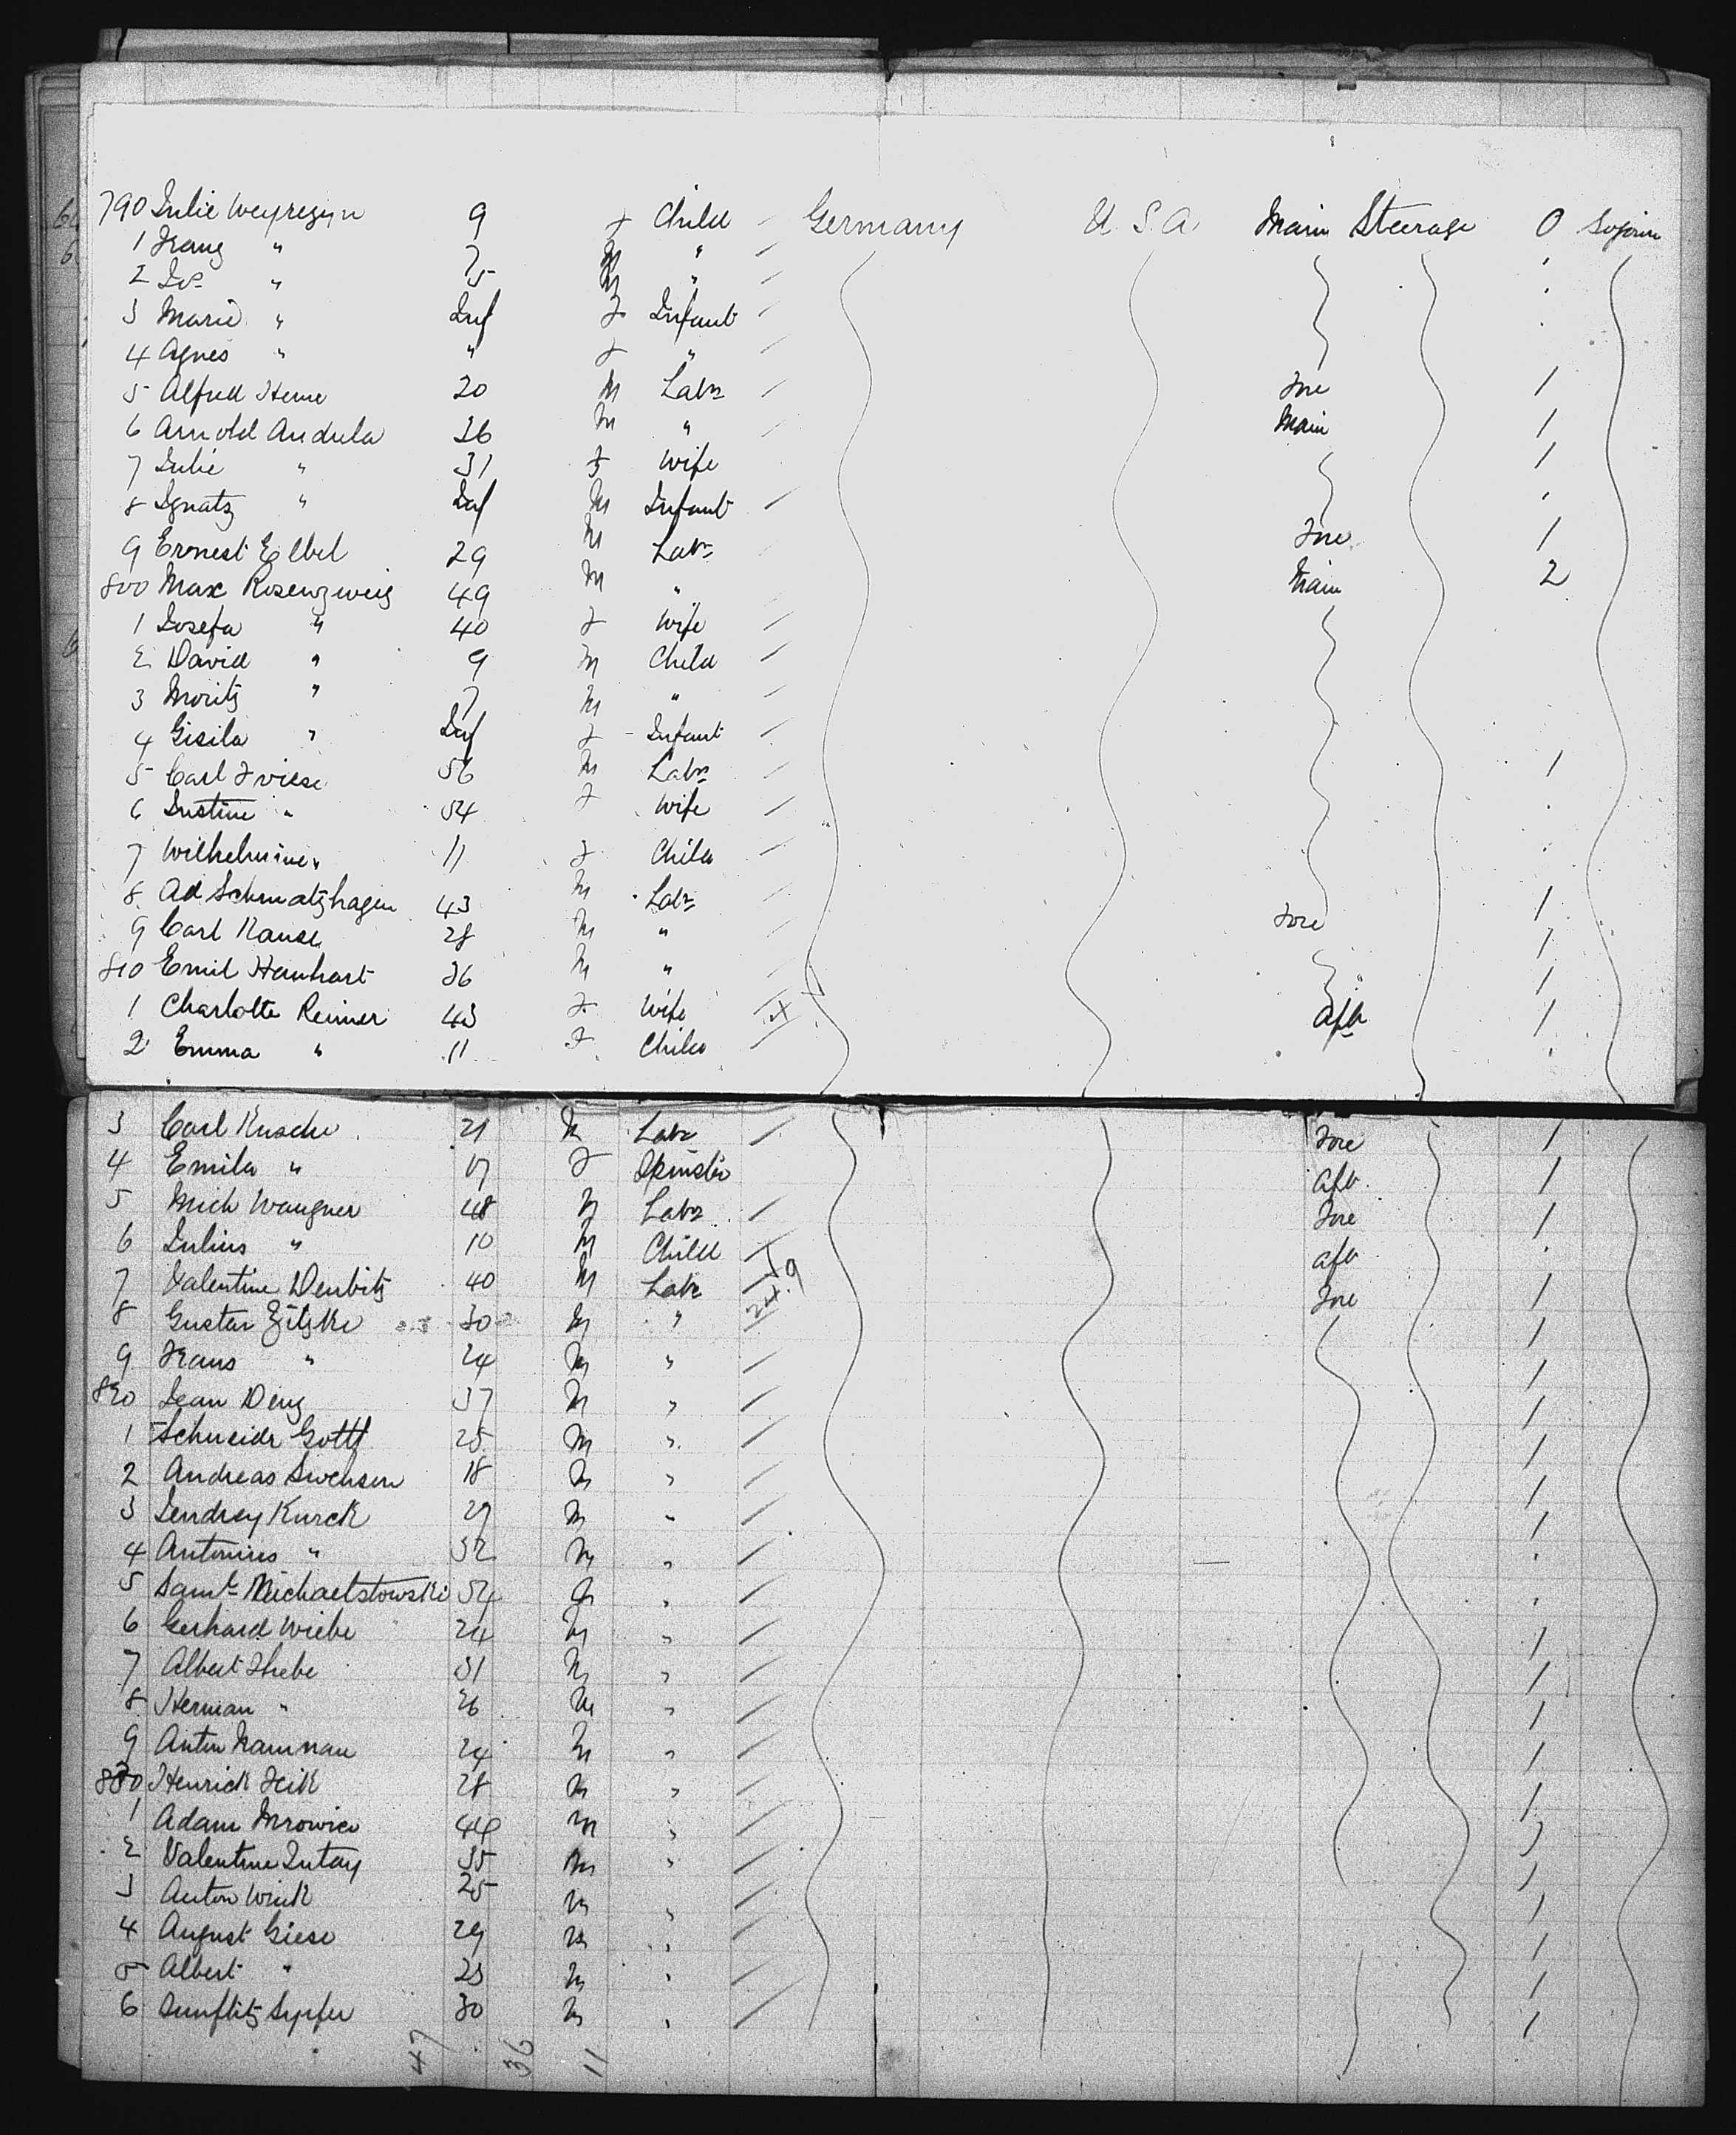 790 Julie 9 f Child Germany U.S.A. Main Steerage 0 Sojourn
1 Franz " 7 M "
2 Jos " 5 M "
3 Marie " Inf f Infant
4 Agnes " " f "
5 Alfred Henne 20 M Labr Fore 1
6 Arnold Andula 36 M " Main 1
7 Julie " 31 f Wife 1
8 Ignatz " Inf M Infant
9 Ernest Elbel 29 M Labr Fore 1
800 Max Rosenzweig 49 M " Main 2
1 Josefa " 40 f Wife
2 David " 9 M Child
3 Moritz " 7 M "
4 Gisila " Inf f Infant
5 Carl Friese 56 M Labr 1
6 Justine " 54 f Wife
7 Wilhelmine " 11 f Child
8 Ad Schmatzhagen 43 M Labr 1
9 Carl Kause 28 M " Fore 1
810 Emil Hanhart 36 M " 1
1 Charlotte Reimer 43 f Wife X Aft 1
2 Emma " 11 f Child
3 Carl Kusche 21 M Labr Fore 1
4 Emila " 17 f Spinster Aft 1
5 Mich Waugner 48 M Labr Fore 1
6 Julius " 10 M Child Aft
7 Valentine Denbitz 40 M Labr Fore 1
8 Gustav Zitzke 30 M " 1
9 Frans " 24 M " 1
820 Jean Deng 37 M " 1
1 Schneider Gottf 25 M " 1
2 Andreas Swensen 18 M " 1
3 Kurck 29 M " 1
4 " 32 M "
5 Saml Michaelstowski 54 M "
6 Gerhard Wiebe 24 M " 1
7 Albert Thebe 31 M " 1
8 Herman " 26 M " 1
9 Anton 24 M " 1
830 Henrick Feik 28 M " 1
1 Adam Mrowice 44 M " 1
2 Valentine 35 M " 1
3 Anton Wick 25 M " 1
4 August Giese 29 M " 1
5 Albert " 23 M " 1
6 30 M " 1
47 36 11